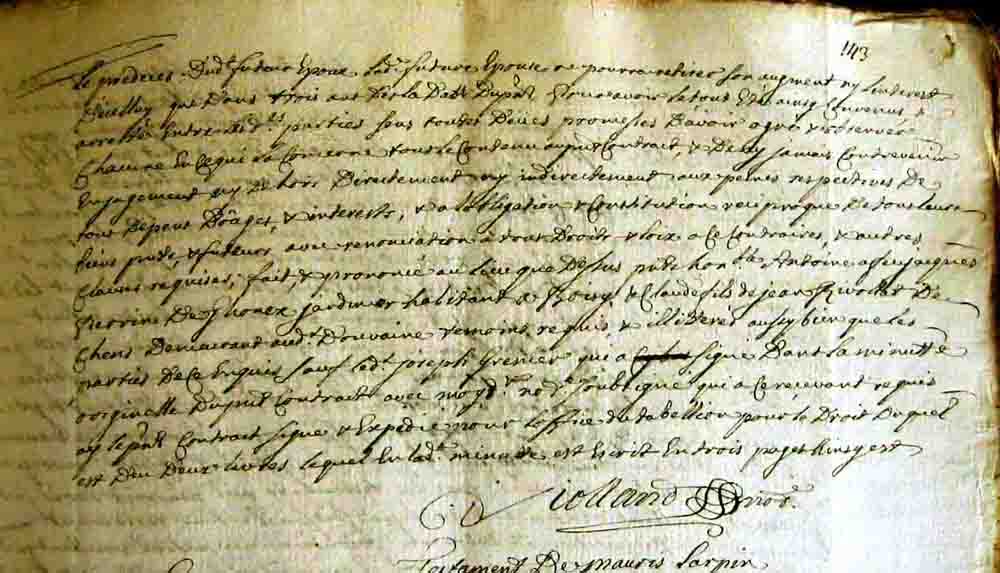 143
le predeces dud.t futeur Epoux lad.t future Epouse ne pourra retirer son augment ny linterest
d'icelluy que dans trois ans dès la datte dup̃nt Pour avoir le tout Esté ainsy convenus &
arresté Entre lesd.ts parties sous toutes deues promesses d'avoir agréé & observer
Chacune En ce qui la Concerne tout le Contenu aup̃nt Contrait, & de ny jamais Contrevenir
directement ny indirectement aux peines respectives de
tous dépens dom̃ages, & interests, & a lobligation & Constitution reciproque de tous leurs
biens p̃nts, & futeurs avec renonciation à tous droits & loix a ce Contraires, & autres
Clauses requises, fait, & prononcé au lieu que dessus p̃nts hon.ble Antoine a feu jacques
Perrine De Thonex jardinier habitant a Boisy & Claude fils de jean Rivollet De
Chens Demeurant aud.t Douvaine temoins requis & illitterés aussy bien que les
parties de ce Enquis sauf led.t joseph Grenier qui a signé Dans la minutte
originelle dup̃nt Contract avec moy d.t no.re soubsigné qui a ce recevant requis
ay le p̃nt Contract signé & Expedié pour l'office du tabellion pour le Droit duquel
est deu deux livres lequel En lad.te minutte est Escrit En trois pages Ainsy est
Violland not.e
Testament De Mauris Larpin